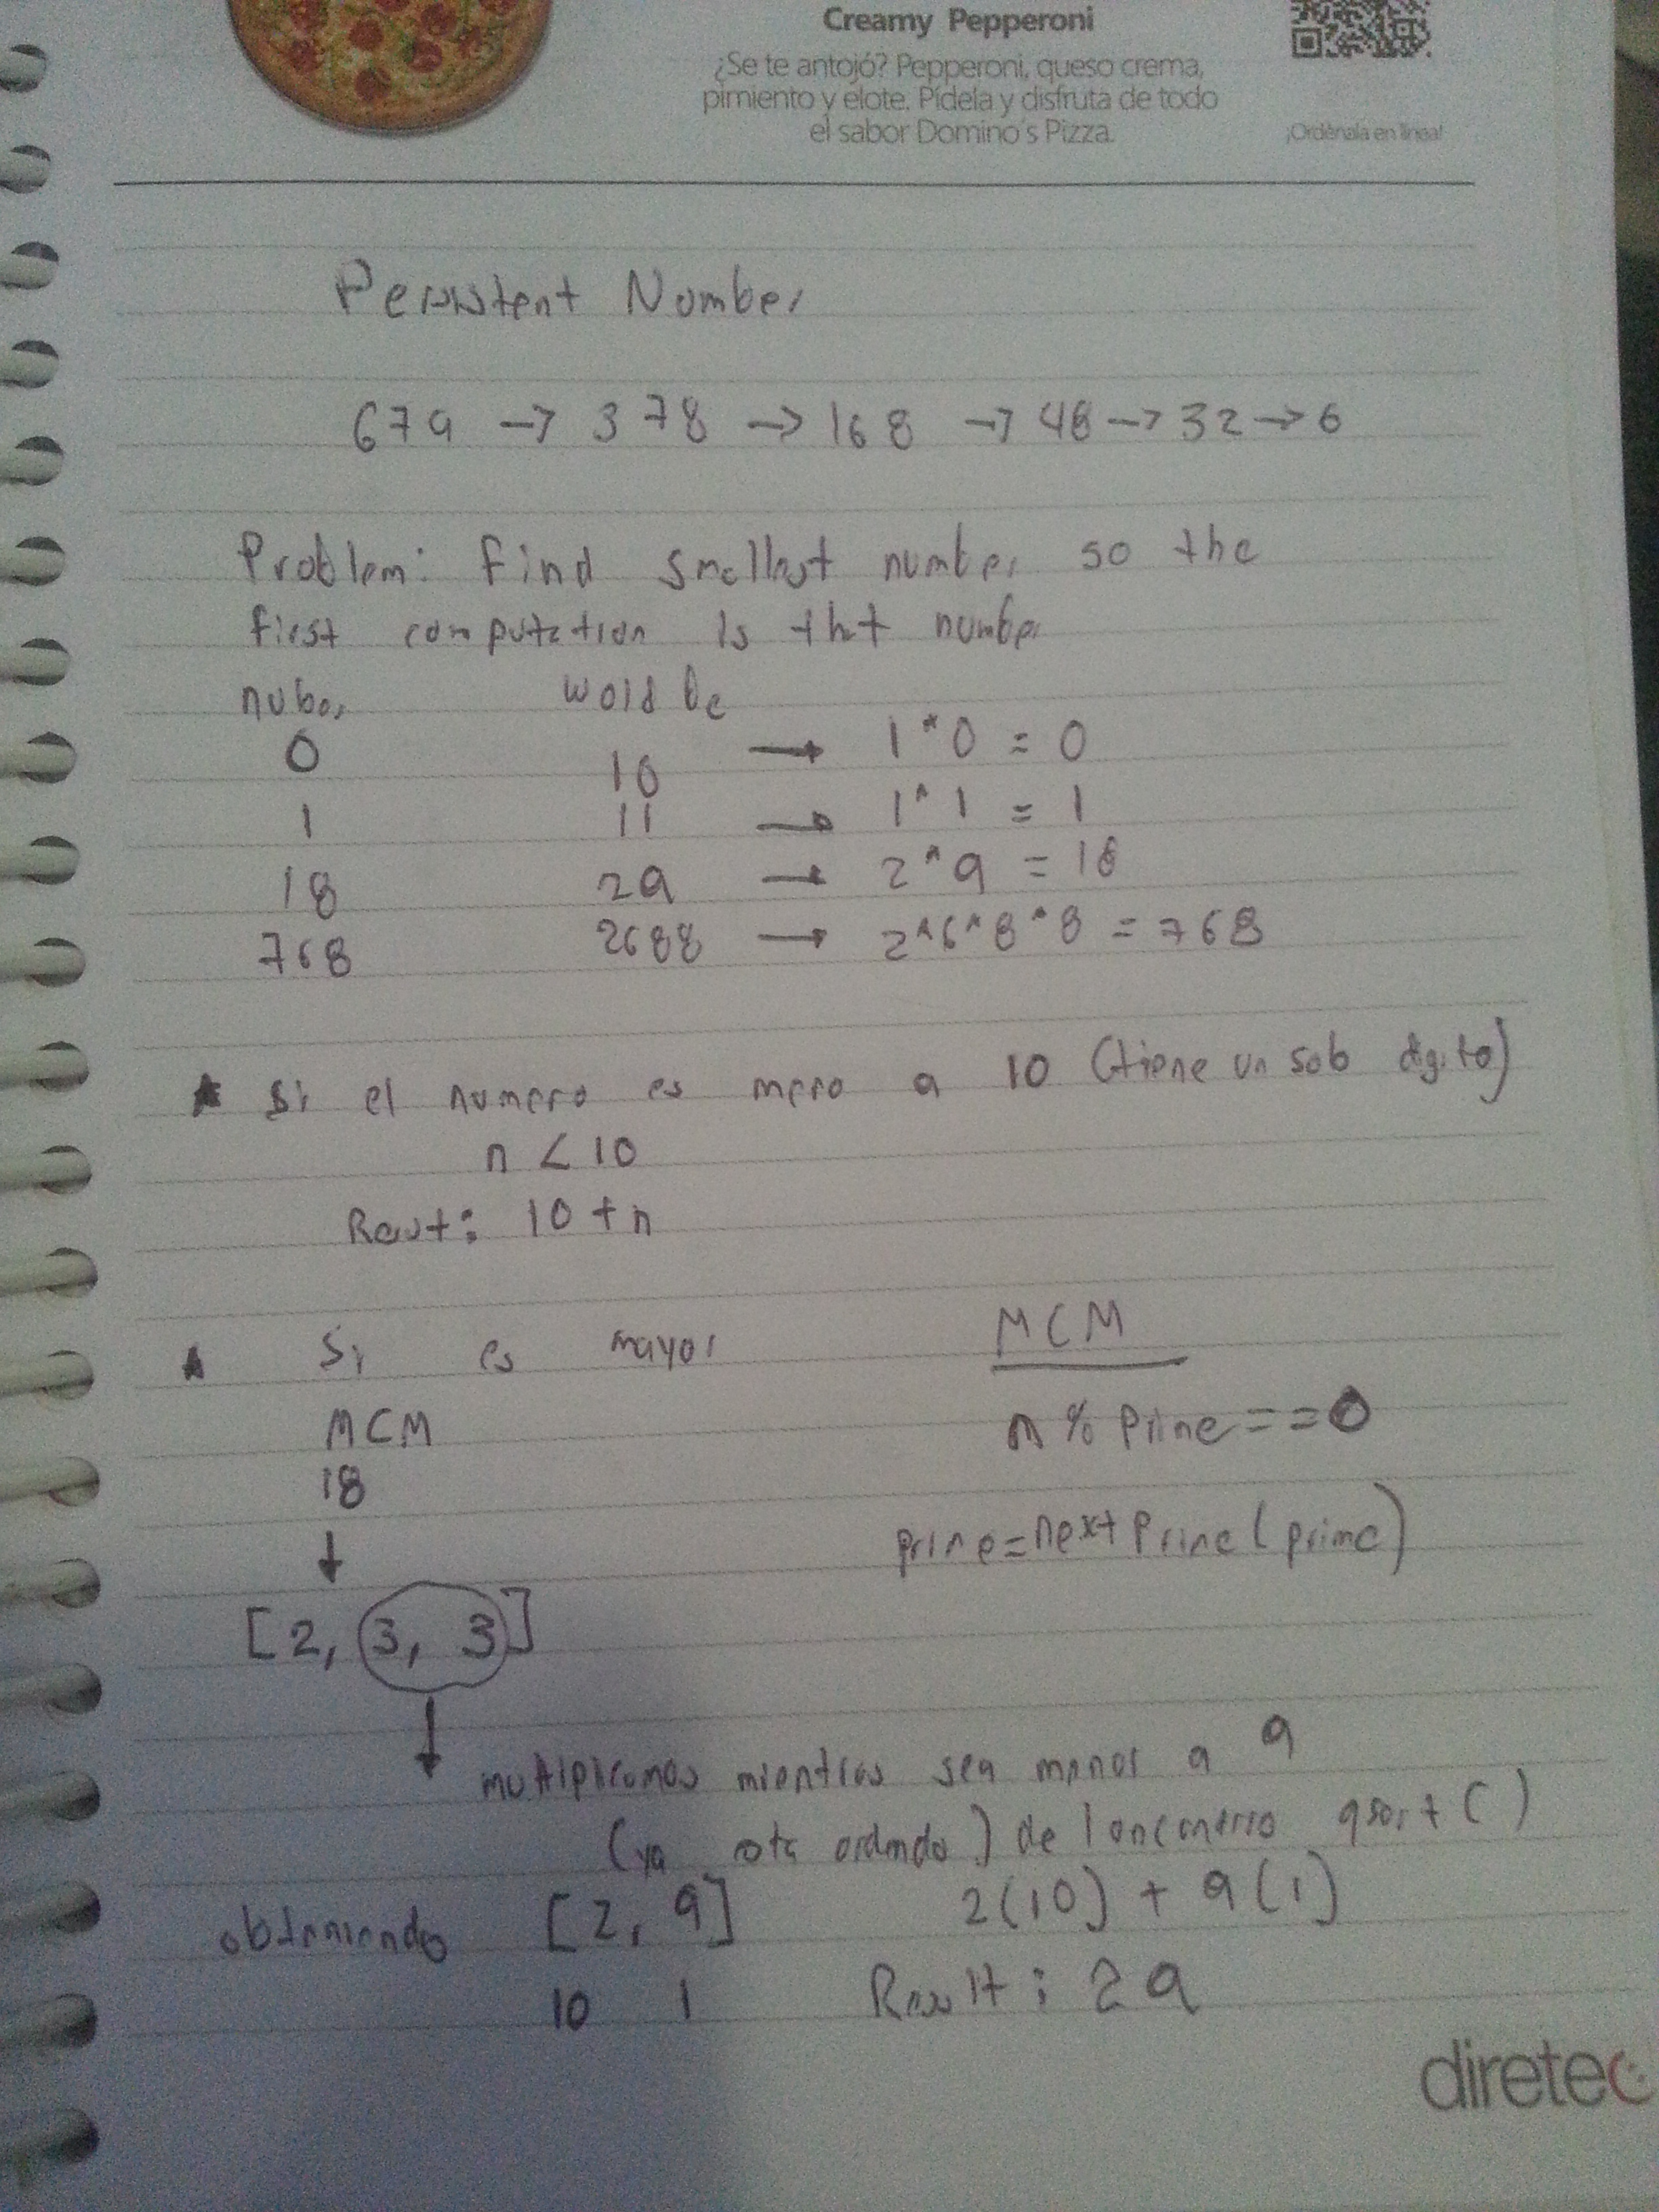 Creamy Pepperoni
¿Se te antojó? Pepperoni, queso crema,
pimiento y elote. Pídela y disfruta de todo
el sabor Domino's Pizza.
¡Ordénala en línea!
Persistent Number
679 → 378 → 168 → 48 → 32 → 6
Problem: Find smallest number so the
first computation is that number
nuber would be
0 10 → 1*0 = 0
1 11 → 1*1 = 1
18 29 → 2*9 = 18
768 2688 → 2*6*8*8 = 768
* Si el numero es meno a 10 (tiene un solo digito)
n < 10
Result: 10 + n
* Si es mayor
MCM
18
↓
[2, 3, 3]
MCM
n % Prime == 0
prime = next Prime (prime)
↓
multiplicamos mientras sea menor a 9
(ya esta ordenado) de lo contrario qsort()
obteniendo [2, 9] 2(10) + 9(1)
10 1 Result: 29
diretec